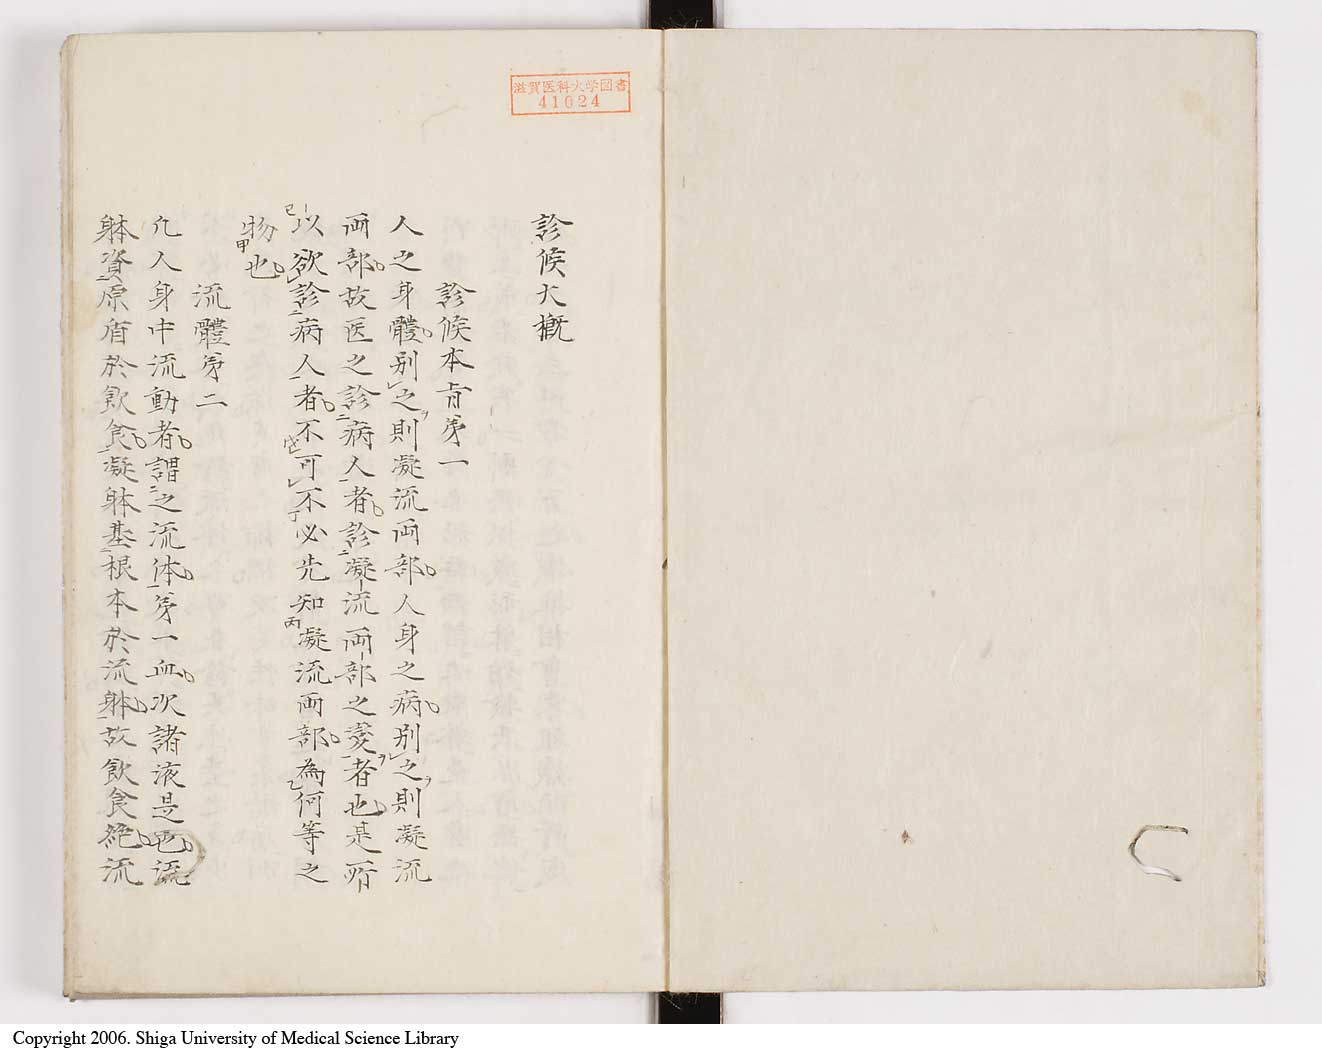 滋賀医科大学図書
41024
診候大概
診候本旨第一
人之身體別之則凝流両部人身之病別之則凝流
両部故医之診病人者診凝流両部之變者也是所
以欲診病人者不可不必先知凝流両部為何等之
物也
流體第二
凡人身中流動者謂之流体第一血次諸液是也流
躰資原盾於飲食凝躰基根本於流躰故飲食絶流
Copyright 2006. Shiga University of Medical Science Library